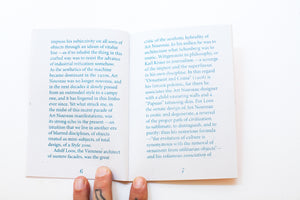 impress his subjectivity on all sorts of
objects through an idiom of vitalist
line — as if to inhabit the thing in this
crafted way was to resist the advance
of industrial reification somehow.
As the aesthetics of the machine
became dominant in the 1920s, Art
Nouveau was no longer nouveau, and
in the next decades it slowly passed
from an outmoded style to a camp
one, and it has lingered in this limbo
ever since. Yet what struck me, in
the midst of this recent parade of
Art Nouveau manifestations, was
its strong echo in the present — an
intuition that we live in another era
of blurred disciplines, of objects
treated as mini-subjects, of total
design, of a Style 2000.
Adolf Loos, the Viennese architect
of austere facades, was the great
6
critic of the aesthetic hybridity of
Art Nouveau. In his milieu he was to
architecture what Schönberg was to
music, Wittgenstein to philosophy, or
Karl Kraus to journalism — a scourge
of the impure and the superfluous
in his own discipline. In this regard
"Ornament and Crime" (1908) is
his fiercest polemic, for there he
associates the Art Nouveau designer
with a child smearing walls and a
"Papuan" tattooing skin. For Loos
the ornate design of Art Nouveau
is erotic and degenerate, a reversal
of the proper path of civilization
to sublimate, to distinguish, and to
purify: thus his notorious formula
— "the evolution of culture is
synonymous with the removal of
ornament from utilitarian objects" —
and his infamous association of
7